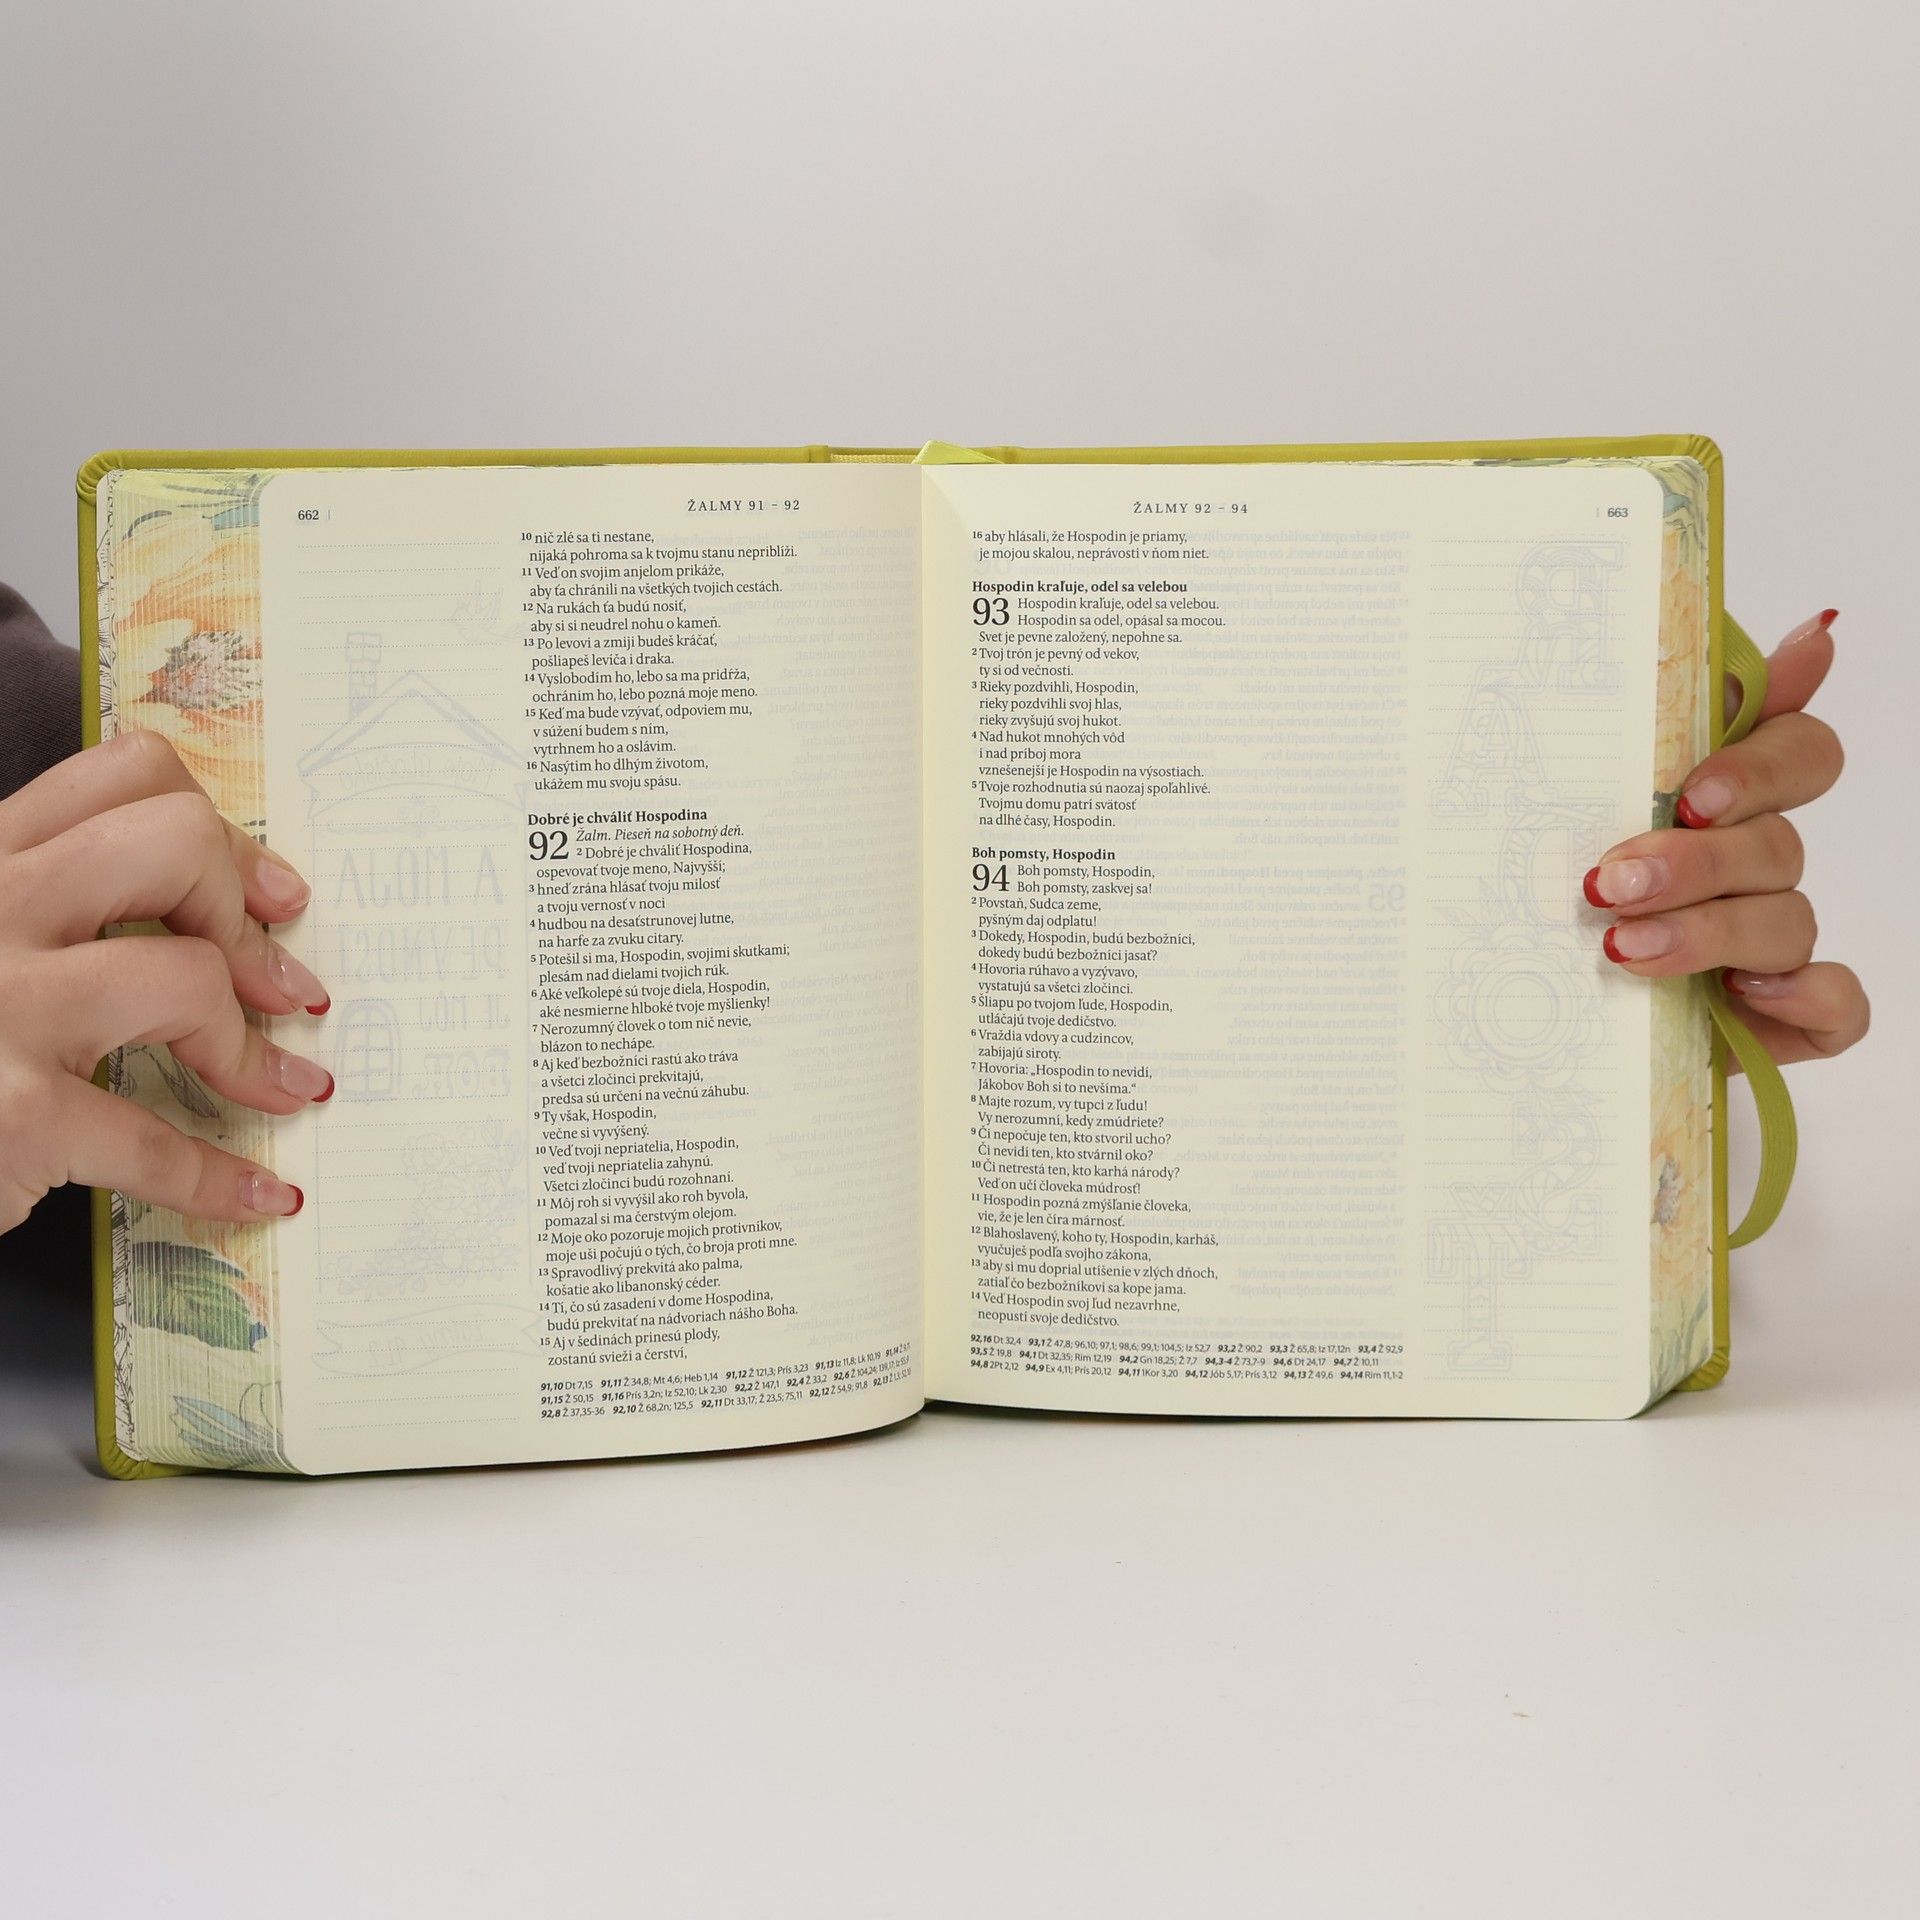 662
ŽALMY 91 – 92
10 nič zlé sa ti nestane,
nijaká pohroma sa k tvojmu stanu nepriblíži.
11 Veď on svojim anjelom prikáže,
aby ťa chránili na všetkých tvojich cestách.
12 Na rukách ťa budú nosiť,
aby si si neudrel nohu o kameň.
13 Po levovi a zmiji budeš kráčať,
pošliapeš levíča i draka.
14 Vyslobodím ho, lebo sa ma pridŕža,
ochránim ho, lebo pozná moje meno.
15 Keď ma bude vzývať, odpoviem mu,
v súžení budem s ním,
vytrhnem ho a oslávim.
16 Nasýtim ho dlhým životom,
ukážem mu svoju spásu.
Dobré je chváliť Hospodina
92 Žalm. Pieseň na sobotný deň.
2 Dobré je chváliť Hospodina,
ospevovať tvoje meno, Najvyšší;
3 hneď zrána hlásať tvoju milosť
a tvoju vernosť v noci
4 hudbou na desaťstrunovej lutne,
na harfe za zvuku citary.
5 Potešil si ma, Hospodin, svojimi skutkami;
plesám nad dielami tvojich rúk.
6 Aké veľkolepé sú tvoje diela, Hospodin,
aké nesmierne hlboké tvoje myšlienky!
7 Nerozumný človek o tom nič nevie,
blázon to nechápe.
8 Aj keď bezbožníci rastú ako tráva
a všetci zločinci prekvitajú,
predsa sú určení na večnú záhubu.
9 Ty však, Hospodin,
večne si vyvýšený.
10 Veď tvoji nepriatelia, Hospodin,
veď tvoji nepriatelia zahynú.
Všetci zločinci budú rozohnaní.
11 Môj roh si vyvýšil ako roh byvola,
pomazal si ma čerstvým olejom.
12 Moje oko pozoruje mojich protivníkov,
moje uši počujú o tých, čo broja proti mne.
13 Spravodlivý prekvitá ako palma,
košatie ako libanonský céder.
14 Tí, čo sú zasadení v dome Hospodina,
budú prekvitať na nádvoriach nášho Boha.
15 Aj v šedinách prinesú plody,
zostanú svieži a čerství,
91,10 Dt 7,15 91,11 Ž 34,8; Mt 4,6; Heb 1,14 91,12 Ž 121,3; Prís 3,23 91,13 Iz 11,8; Lk 10,19 91,14 Ž 9,11
91,15 Ž 50,15 91,16 Prís 3,2n; Iz 52,10; Lk 2,30 92,2 Ž 147,1 92,4 Ž 33,2 92,6 Ž 104,24; 139,17; Iz 55,9
92,8 Ž 37,35-36 92,10 Ž 68,2n; 125,5 92,11 Dt 33,17; Ž 23,5; 75,11 92,12 Ž 54,9; 91,8 92,13 Ž 1,3; 52,10
ŽALMY 92 – 94
663
16 aby hlásali, že Hospodin je priamy,
je mojou skalou, neprávosti v ňom niet.
Hospodin kraľuje, odel sa velebou
93 Hospodin kraľuje, odel sa velebou.
Hospodin sa odel, opásal sa mocou.
Svet je pevne založený, nepohne sa.
2 Tvoj trón je pevný od vekov,
ty si od večnosti.
3 Rieky pozdvihli, Hospodin,
rieky pozdvihli svoj hlas,
rieky zvyšujú svoj hukot.
4 Nad hukot mnohých vôd
i nad príboj mora
vznešenejší je Hospodin na výsostiach.
5 Tvoje rozhodnutia sú naozaj spoľahlivé.
Tvojmu domu patrí svätosť
na dlhé časy, Hospodin.
Boh pomsty, Hospodin
94 Boh pomsty, Hospodin,
Boh pomsty, zaskvej sa!
2 Povstaň, Sudca zeme,
pyšným daj odplatu!
3 Dokedy, Hospodin, budú bezbožníci,
dokedy budú bezbožníci jasať?
4 Hovoria rúhavo a vyzývavo,
vystatujú sa všetci zločinci.
5 Šliapu po tvojom ľude, Hospodin,
utláčajú tvoje dedičstvo.
6 Vraždia vdovy a cudzincov,
zabíjajú siroty.
7 Hovoria: „Hospodin to nevidí,
Jákobov Boh si to nevšíma.“
8 Majte rozum, vy tupci z ľudu!
Vy nerozumní, kedy zmúdriete?
9 Či nepočuje ten, kto stvoril ucho?
Či nevidí ten, kto stvárnil oko?
10 Či netrestá ten, kto karhá národy?
Veď on učí človeka múdrosť!
11 Hospodin pozná zmýšľanie človeka,
vie, že je len číra márnosť.
12 Blahoslavený, koho ty, Hospodin, karháš,
vyučuješ podľa svojho zákona,
13 aby si mu doprial utíšenie v zlých dňoch,
zatiaľ čo bezbožníkovi sa kope jama.
14 Veď Hospodin svoj ľud nezavrhne,
neopustí svoje dedičstvo.
92,16 Dt 32,4 93,1 Ž 47,8; 96,10; 97,1; 98,6; 99,1; 104,5; Iz 52,7 93,2 Ž 90,2 93,3 Ž 65,8; Iz 17,12n 93,4 Ž 92,9
93,5 Ž 19,8 94,1 Dt 32,35; Rim 12,19 94,2 Gn 18,25; Ž 7,7 94,3-4 Ž 73,7-9 94,6 Dt 24,17 94,7 Ž 10,11
94,8 2Pt 2,12 94,9 Ex 4,11; Prís 20,12 94,11 1Kor 3,20 94,12 Jób 5,17; Prís 3,12 94,13 Ž 49,6 94,14 Rim 11,1-2